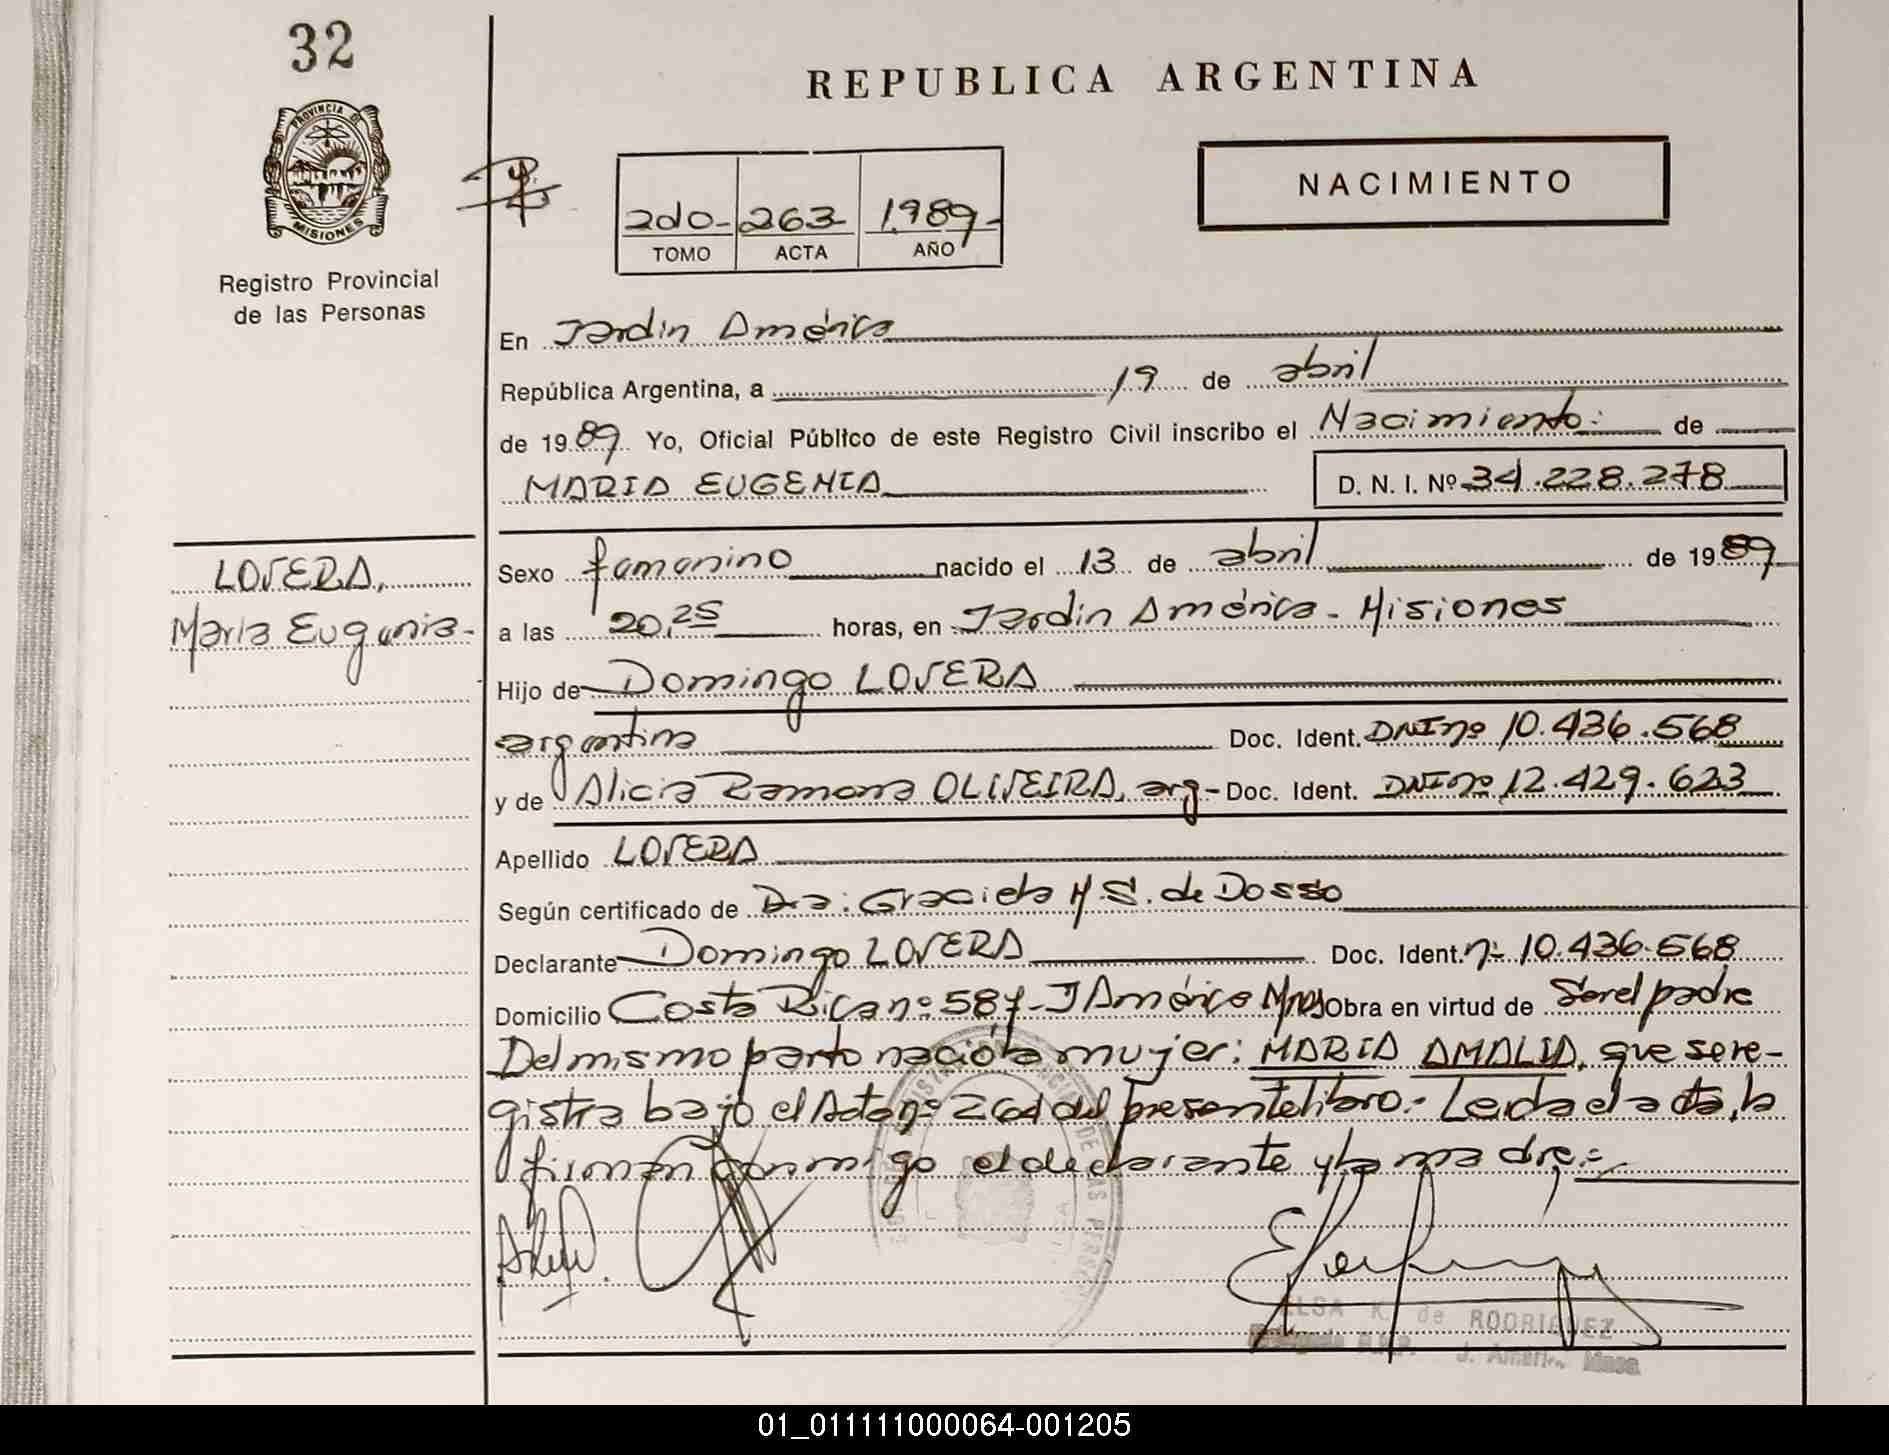 32
REPUBLICA ARGENTINA
PROVINCIA DE
MISIONES
Registro Provincial
de las Personas
2do- 263- 1.989-
TOMO ACTA AÑO
NACIMIENTO
En Jardin América
República Argentina, a 19 de abril
de 1989 Yo, Oficial Público de este Registro Civil inscribo el Nacimiento: de
MARIA EUGENIA D. N. I. Nº 34.228.278
LOVERA,
Maria Eugenia-
Sexo femenino nacido el 13 de abril de 1989
a las 20,25 horas, en Jardin América - Misiones
Hijo de Domingo LOVERA
argentina Doc. Ident. DNI nº 10.436.568
y de Alicia Ramona OLIVEIRA, arg- Doc. Ident. DNI nº 12.429.623
Apellido LOVERA
Según certificado de Dra: Graciela M.S. de Dosso
Declarante Domingo LOVERA Doc. Ident. nº 10.436.568
Domicilio Costa Rica nº 587- J América Mnes Obra en virtud de Ser el padre
Del mismo parto nació la mujer: MARIA AMALIA, que se re-
gistra bajo el Acta nº 264 del presente libro.- Leida el acta, la
firman conmigo el declarante y la madre.-
ELSA K. de RODRIGUEZ
J. América Mnes
01_011111000064-001205